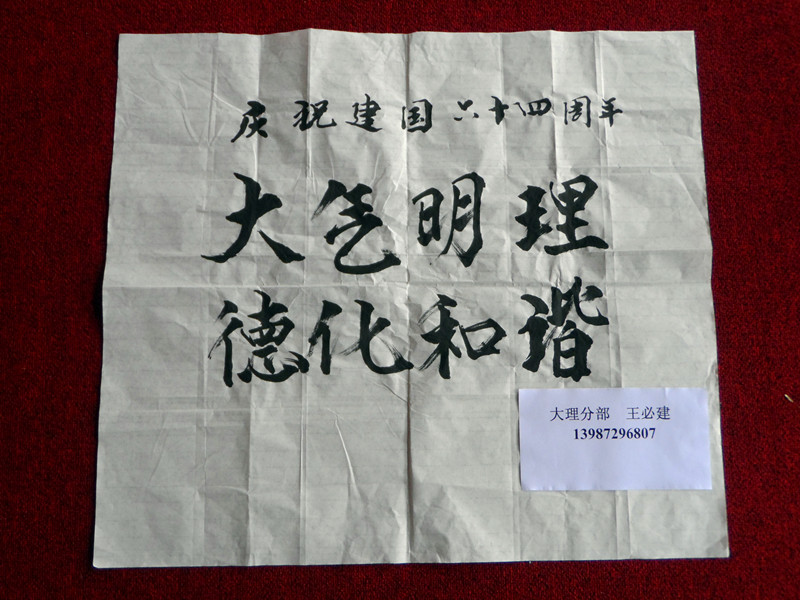 庆祝建国六十四周年
大气明理
德化和谐
大理分部 王必建
13987296807